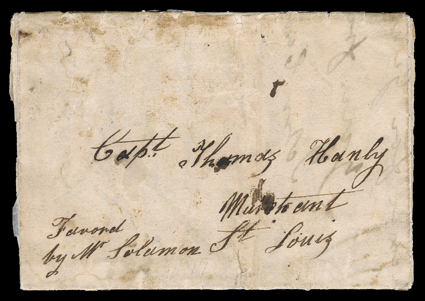 Capt. Thomas Hanly
Merchant
St. Louis
Favord
by Mr Solomon